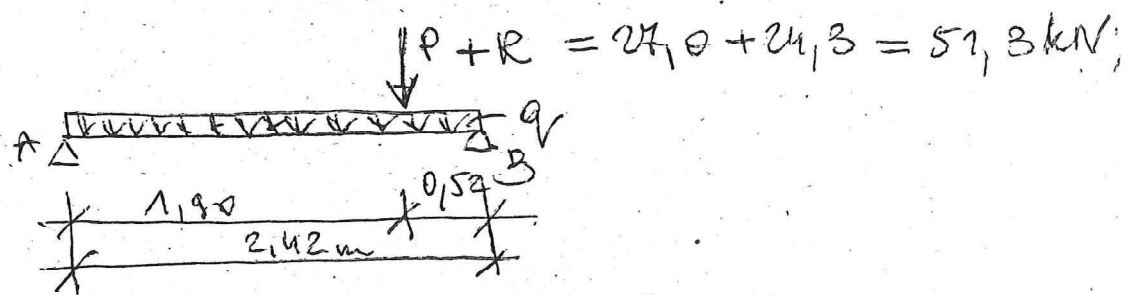 P + R = 27,0 + 24,3 = 51,3 kN;
q
A
B
1,90
0,52
2,42 m